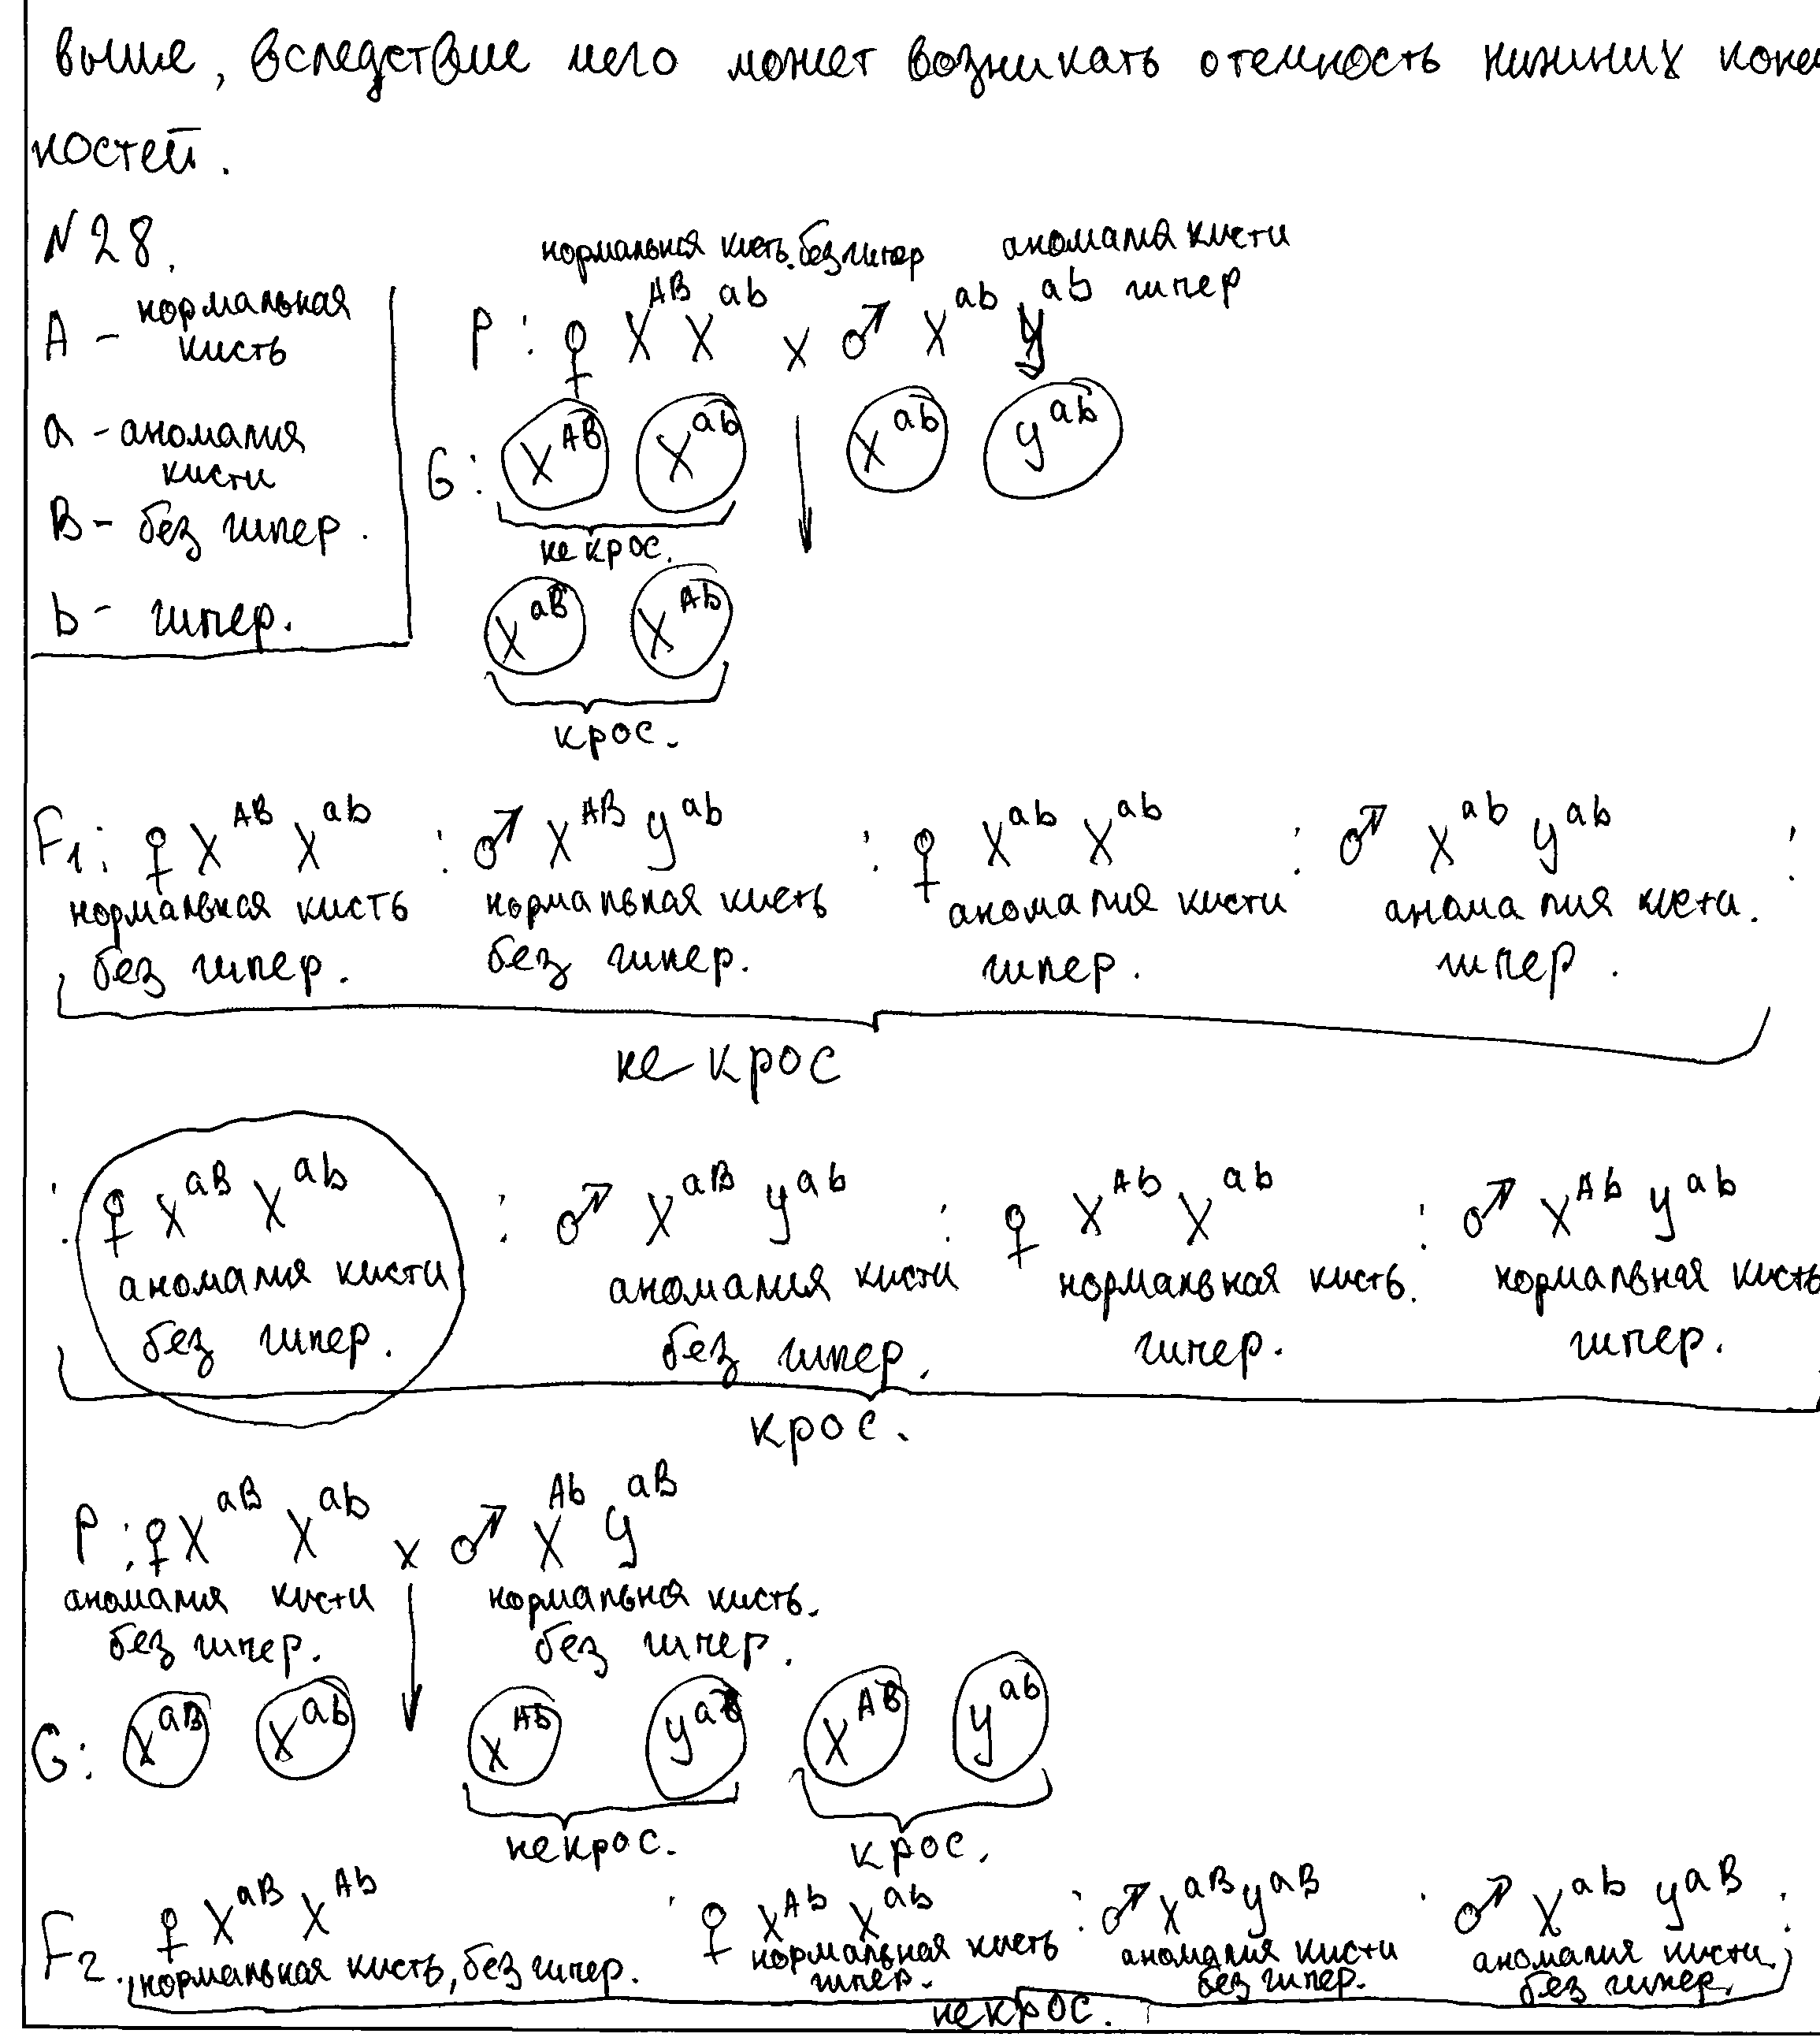 выше, вследствие чего может возникать отечность нижних конеч
ностей.
N28.
A – нормальная кисть
a – аномалия кисти
B – без гипер.
b – гипер.
нормальная кисть. без гипер аномалия кисти гипер
P: ♀ X^AB X^ab x ♂ X^ab y^ab
G: X^AB X^ab X^ab y^ab
не крос.
X^aB X^Ab
крос.
F1: ♀ X^AB X^ab : ♂ X^AB y^ab : ♀ X^ab X^ab : ♂ X^ab y^ab :
нормальная кисть нормальная кисть аномалия кисти аномалия кисти.
без гипер. без гипер. гипер. гипер.
не крос
: ♀ X^aB X^ab : ♂ X^aB y^ab : ♀ X^Ab X^ab : ♂ X^Ab y^ab
аномалия кисти аномалия кисти нормальная кисть. нормальная кисть
без гипер. без гипер. гипер. гипер.
крос.
P: ♀ X^aB X^ab x ♂ X^Ab y^aB
аномалия кисти нормальная кисть.
без гипер. без гипер.
G: X^aB X^ab X^Ab y^aB X^AB y^ab
не крос. крос.
F2. ♀ X^aB X^Ab : ♀ X^Ab X^ab : ♂ X^aB y^aB : ♂ X^ab y^aB :
нормальная кисть, без гипер. нормальная кисть аномалия кисти аномалия кисти
гипер. без гипер. без гипер.
не крос.